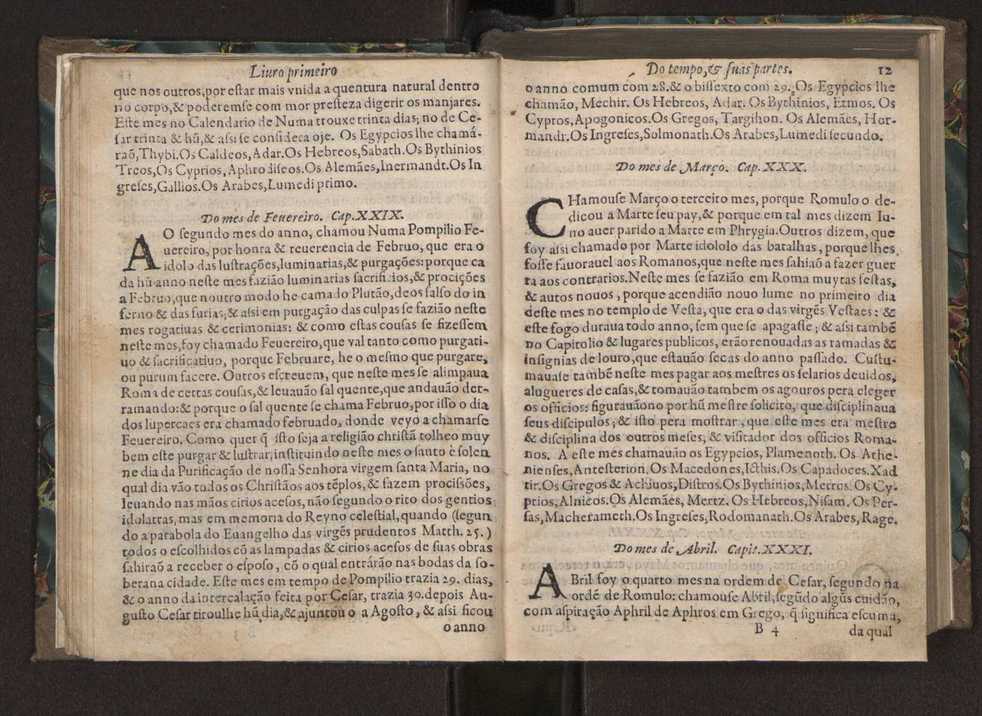 Liuro primeiro
que nos outros,por estar mais vnida a quentura natural dentro
no corpo,& poderemse com mor presteza digerir os manjares.
Este mes no Calendario de Numa trouxe trinta dias; no de Ce-
sar trinta & hũ,& assi se considera oje. Os Egypcios lhe chamá-
raõ,Thybi.Os Caldeos,Adar.Os Hebreos,Sabath.Os Bythinios
Treos,Os Cyprios,Aphrodiseos.Os Alemães,Inermandt.Os In
greses,Gallios.Os Arabes,Lumedi primo.
Do mes de Feuereiro. Cap.XXIX.
AO segundo mes do anno, chamou Numa Pompilio Fe-
uereiro, por honra & reuerencia de Februo, que era o
idolo das lustrações,luminarias,& purgações: porque ca
da hũ anno neste mes fazião luminarias sacrificios,& procições
a Februo,que noutro modo he camado Plutão,deos falso do in
ferno & das furias; & assi em purgação das culpas se fazião neste
mes rogatiuas & cerimonias: & como estas cousas se fizessem
neste mes,foy chamado Feuereiro,que val tanto como purgati-
uo & sacrificatiuo, porque Februare, he o mesmo que purgare,
ou purum facere. Outros escreuem, que neste mes se alimpaua
Roma de certas cousas,& leuauão sal quente,que andauão der-
ramando:& porque o sal quente se chama Februo,por isso o dia
dos lupercaes era chamado februado, donde veyo a chamarse
Feuereiro. Como quer q̃ isto seja a religião christã tolheo muy
bem este purgar & lustrar,instituindo neste mes o santo è solen
ne dia da Purificação de nossa Senhora virgem santa Maria, no
qual dia vão todos os Christãos aos tẽplos,& fazem procissões,
leuando nas mãos cirios acesos, não segundo o rito dos gentios
idolatras, mas em memoria do Reyno celestial, quando (segun
do a parabola do Euangelho das virgẽs prudentos Matth. 25.)
todos o escolhidos cõ as lampadas & cirios acesos de suas obras
sahiraõ a receber o esposo, cõ o qual entrárão nas bodas da so-
berana cidade. Este mes em tempo de Pompilio trazia 29. dias,
& o anno da intercalação feita por Cesar, trazia 30.depois Au-
gusto Cesar tiroulhe hũ dia,& ajuntou o a Agosto, & assi ficou
o anno
Do tempo,& suas partes. 12
o anno comum com 28.& o bissexto com 29. Os Egypcios lhe
chamão, Mechir. Os Hebreos, Adar. Os Bythinios, Ermos. Os
Cypros,Apogonicos.Os Gregos, Targihon. Os Alemães, Hor-
mandr.Os Ingreses,Solmonath.Os Arabes,Lumedi secundo.
Do mes de Março. Cap.XXX.
CHamouse Março o terceiro mes, porque Romulo o de-
dicou a Marte seu pay,& porque em tal mes dizem Iu-
no auer parido a Marte em Phrygia.Outros dizem, que
foy assi chamado por Marte idololo das batalhas, porque lhes
fosse fauorauel aos Romanos,que neste mes sahiaõ a fazer guer
ra aos contrarios.Neste mes se fazião em Roma muytas festas,
& autos nouos, porque acendião nouo lume no primeiro dia
deste mes no templo de Vesta, que era o das virgẽs Vestaes: &
este fogo duraua todo anno, sem que se apagasse; & assi tambẽ
no Capitolio & lugares publicos, erão renouadas as ramadas &
insignias de louro,que estauão secas do anno passado. Custu-
mauase tambẽ neste mes pagar aos mestres os selarios deuidos,
alugueres de casas,& tomauão tambem os agouros pera eleger
os officios: figurauãono por hũ mestre solicito, que disciplinaua
seus discipulos; & isto pera mostrar, que este mes era mestre
& disciplina dos outros meses, & visitador dos officios Roma-
nos. A este mes chamauão os Egypcios, Plamenoth. Os Athe-
nienses,Antesterion.Os Macedones,Icthis.Os Capadoces.Xad
tir.Os Gregos & Achiuos,Distros.Os Bythinios,Metros.Os Cy-
prios,Alnicos.Os Alemães, Mertz. Os Hebreos, Nisam. Os Per-
sas,Macherameth.Os Ingreses,Rodomanath.Os Arabes, Rage.
Do mes de Abril. Capit.XXXI.
ABril foy o quarto mes na ordem de Cesar, segundo na
ordẽ de Romulo: chamouse Abril,segũdo algũs cuidão,
com aspiração Aphril de Aphros em Grego, q̃ significa escuma,
B 4 da qual